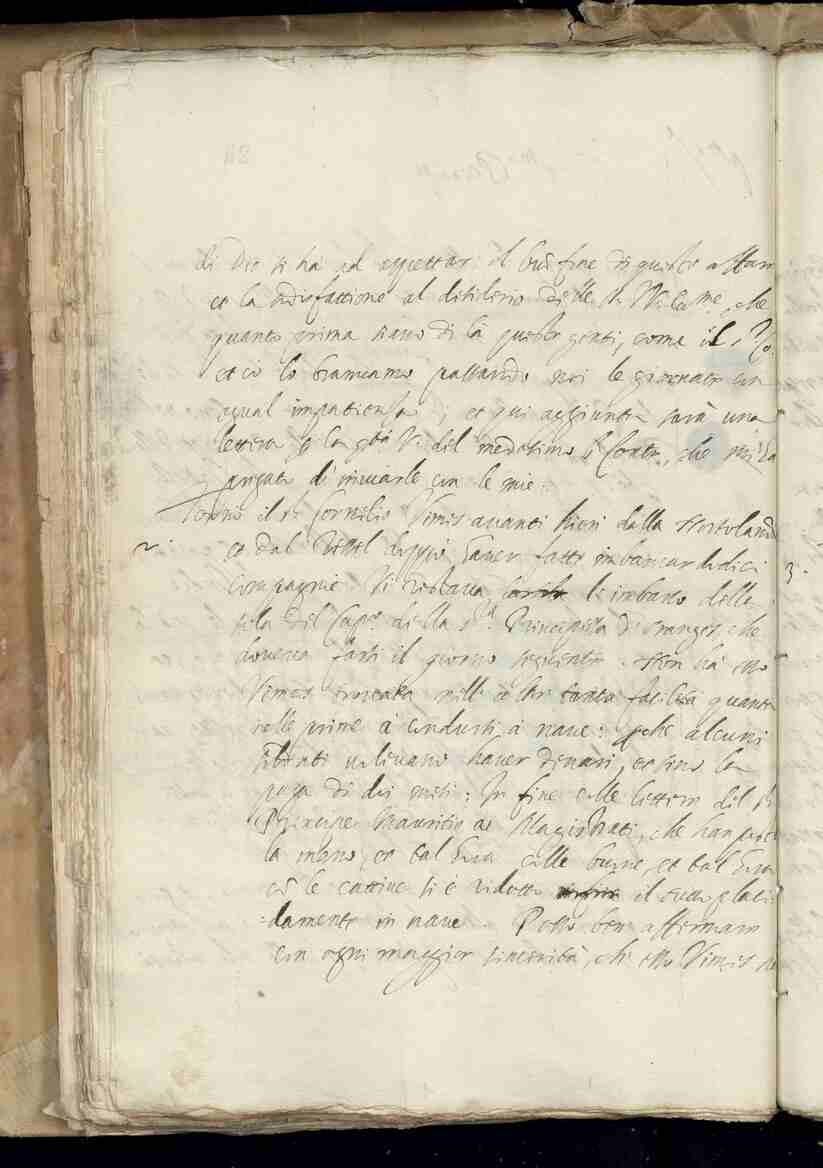 di Dio si ha ad aspettar il buō fine di queste affari
et la sodisfattione al desiderio delle SS. VV. Ecc.me, che
quanto prima siano di là queste genti, come il
et io lo bramiamo passando noi le giornate con
egual impatienza; et qui aggiunta sarà una
lettera p la q.tà V. del medesimo s.r Conte, che mi ha
pregato di inviarle con le mie.
Tornò il s.r Cornelio Vimes avanti hieri dalla Nortolanda
2.
et dal Tessel doppo haver fatti imbarcar dodeci
compagnie. Vi restava l'imbarco della
sola del Cap.o della s.ra Principessa di Oranges, che
doveva farsi il giorno seguente. Non ha esso
Vimes trovata nelle altre tanta facilità quanta
nelle prime à condursi à nave: pche alcuni
soldati volevano haver denari, et sino la
paga di doi mesi: In fine colle lettere del s.r
Principe Mauritio ai Magistrati, che han prestato
la mano, et tal hora colle buone, et tal hora
cō le cattive si è ridotto il tutto placi=
=damente in nave. Posso ben affermare
con ogni maggior sincerità, che esso Vimes
3.